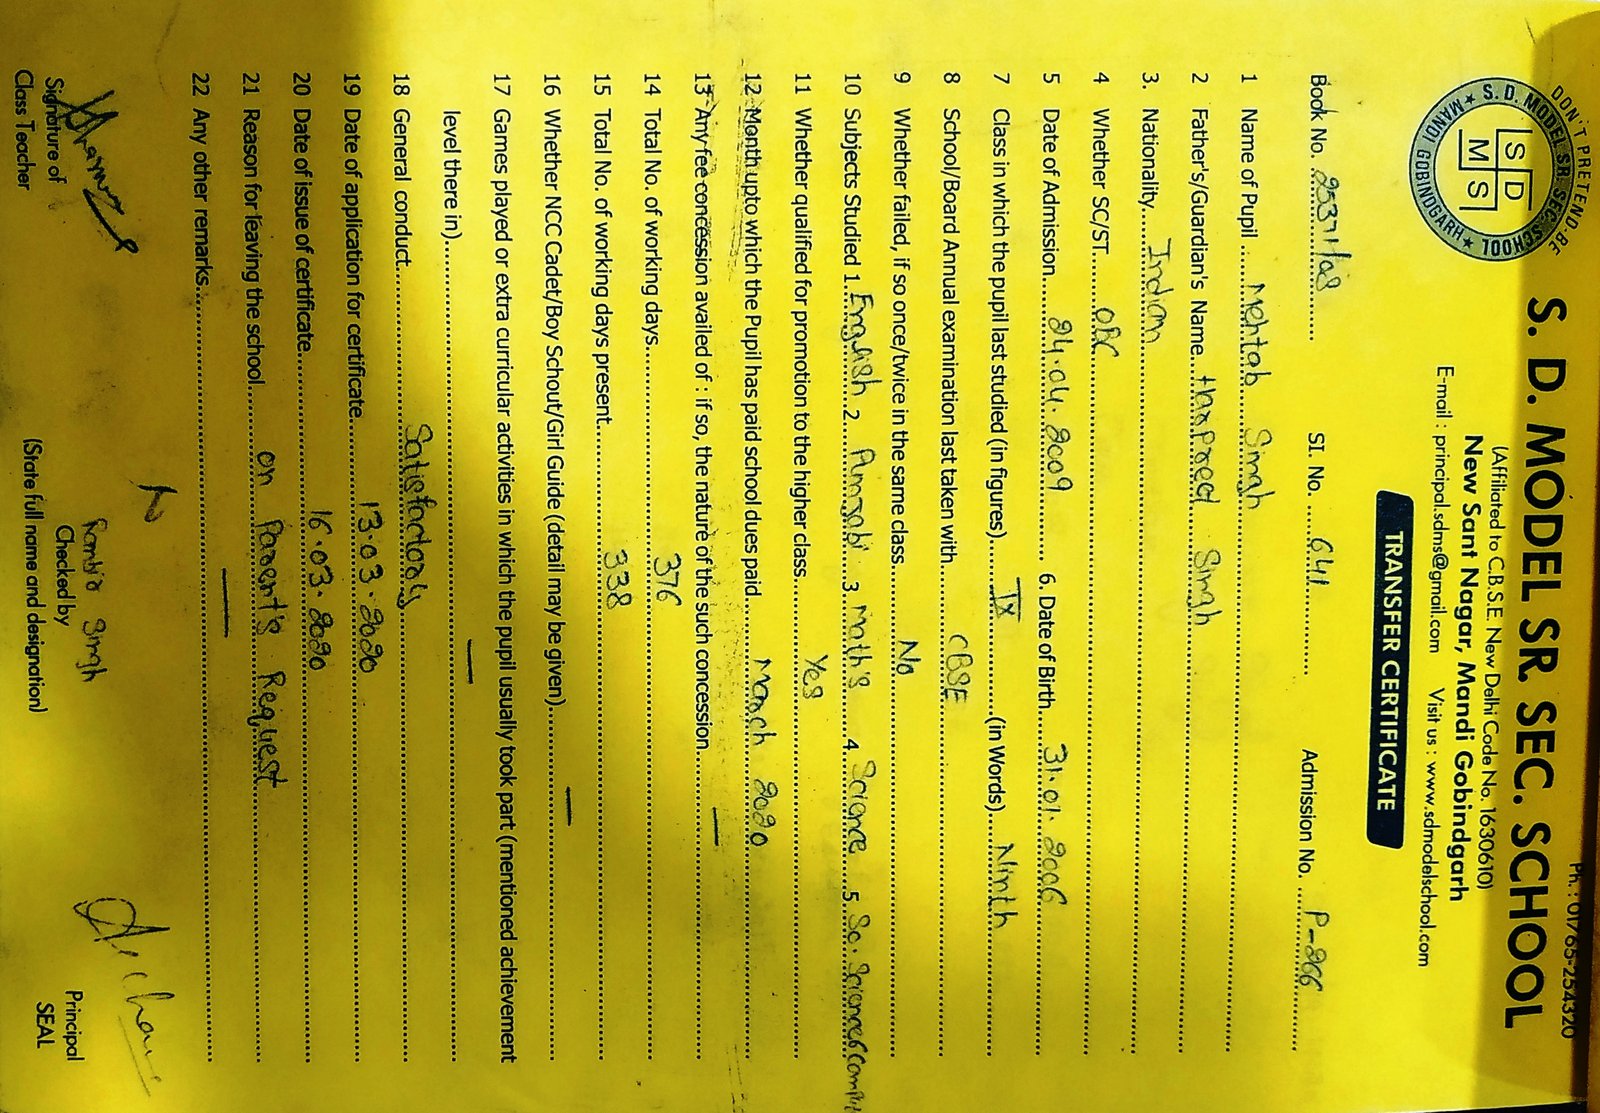 Ph. : 01765-254320
DON'T PRETEND-BE
S. D. MODEL SR. SEC. SCHOOL
★ MANDI GOBINDGARH ★
S D
M S
S. D. MODEL SR. SEC. SCHOOL
(Affiliated to C.B.S.E. New Delhi Code No. 1630610)
New Sant Nagar, Mandi Gobindgarh
E-mail : principal.sdms@gmail.com Visit us : www.sdmodelschool.com
TRANSFER CERTIFICATE
Book No. SI. No. 641 Admission No. P-266
1 Name of Pupil Mehtab Singh
2 Father's/Guardian's Name Harpreet Singh
3. Nationality Indian
4 Whether SC/ST OBC
5 Date of Admission 24.04.2009 6. Date of Birth 31.01.2006
7 Class in which the pupil last studied (in figures) IX (in Words) Ninth
8 School/Board Annual examination last taken with CBSE
9 Whether failed, if so once/twice in the same class No
10 Subjects Studied 1. English 2. Punjabi 3. Maths 4. Science 5. So. Science 6
11 Whether qualified for promotion to the higher class Yes
12 Month upto which the Pupil has paid school dues paid March 2020
13 Any fee concession availed of : if so, the nature of the such concession —
14 Total No. of working days 376
15 Total No. of working days present 338
16 Whether NCC Cadet/Boy Schout/Girl Guide (detail may be given) —
17 Games played or extra curricular activities in which the pupil usually took part (mentioned achievement
level there in) —
18 General conduct Satisfactory
19 Date of application for certificate 13.03.2020
20 Date of issue of certificate 16.03.2020
21 Reason for leaving the school on Parent's Request
22 Any other remarks —
Singh
Signature of
Class Teacher
Checked by
(State full name and designation)
Principal
SEAL